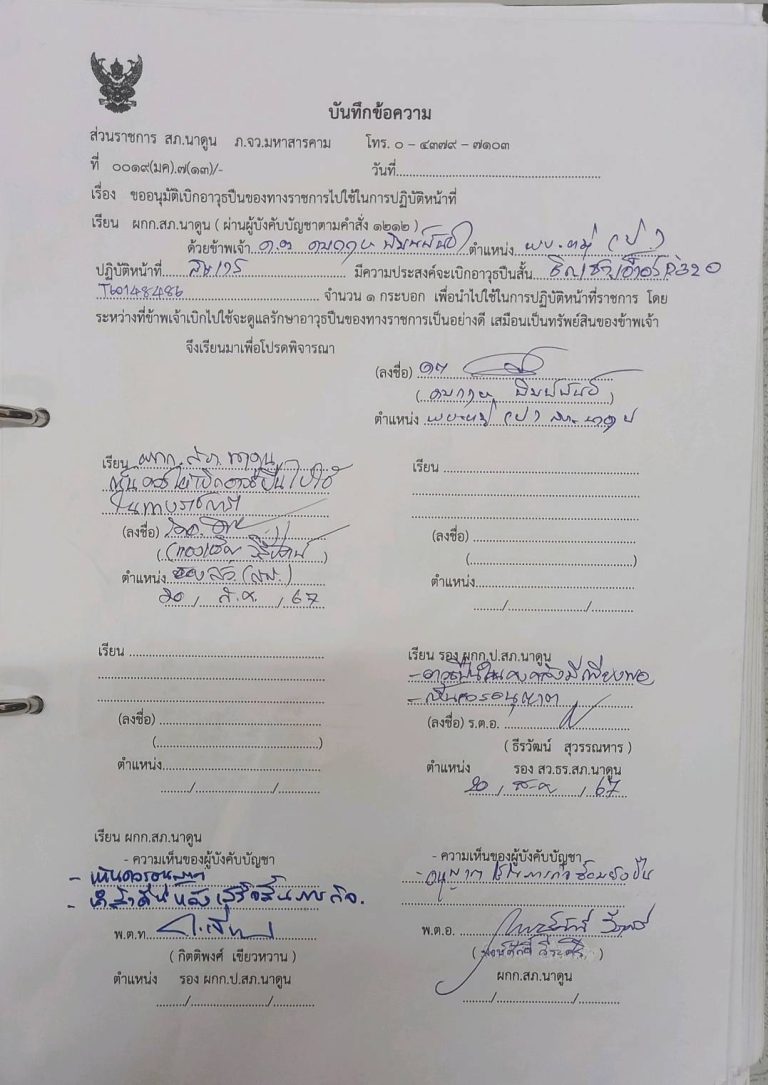 บันทึกข้อความ
ส่วนราชการ สภ.นาดูน ภ.จว.มหาสารคาม โทร. ๐ – ๔๓๗๙ – ๗๑๐๓
ที่ ๐๐๑๙(มค).๗(๑๓)/- วันที่
เรื่อง ขออนุมัติเบิกอาวุธปืนของทางราชการไปใช้ในการปฏิบัติหน้าที่
เรียน ผกก.สภ.นาดูน ( ผ่านผู้บังคับบัญชาตามคำสั่ง ๑๒๑๒ )
ด้วยข้าพเจ้า ด.ต. ตำแหน่ง ผบ.หมู่ (ป.)
ปฏิบัติหน้าที่ สายตรวจ มีความประสงค์จะเบิกอาวุธปืนสั้น P320
จำนวน ๑ กระบอก เพื่อนำไปใช้ในการปฏิบัติหน้าที่ราชการ โดย
ระหว่างที่ข้าพเจ้าเบิกไปใช้จะดูแลรักษาอาวุธปืนของทางราชการเป็นอย่างดี เสมือนเป็นทรัพย์สินของข้าพเจ้า
จึงเรียนมาเพื่อโปรดพิจารณา
(ลงชื่อ)
ตำแหน่ง ผบ.หมู่ (ป.) สภ.นาดูน
เรียน ผกก.สภ.นาดูน
เห็นควรให้เบิกอาวุธปืนไปใช้
ในทางราชการ
(ลงชื่อ)
ตำแหน่ง รอง สว.(สส.)
20 / ส.ค. / 67
เรียน
(ลงชื่อ)
(
)
ตำแหน่ง
/ / /
เรียน
(ลงชื่อ)
(
)
ตำแหน่ง
/ / /
เรียน รอง ผกก.ป.สภ.นาดูน
- อาวุธปืนในคงคลังมีเพียงพอ
- เห็นควรอนุญาต
(ลงชื่อ) ร.ต.อ.
( ธีรวัฒน์ สุวรรณหาร )
ตำแหน่ง รอง สว.ธร.สภ.นาดูน
20 / ส.ค. / 67
เรียน ผกก.สภ.นาดูน
- ความเห็นของผู้บังคับบัญชา
- เห็นควรอนุญาต
พ.ต.ท
( กิตติพงศ์ เขียวหวาน )
ตำแหน่ง รอง ผกก.ป.สภ.นาดูน
/ / /
- ความเห็นของผู้บังคับบัญชา
- อนุญาต
พ.ต.อ.
ผกก.สภ.นาดูน
/ / /